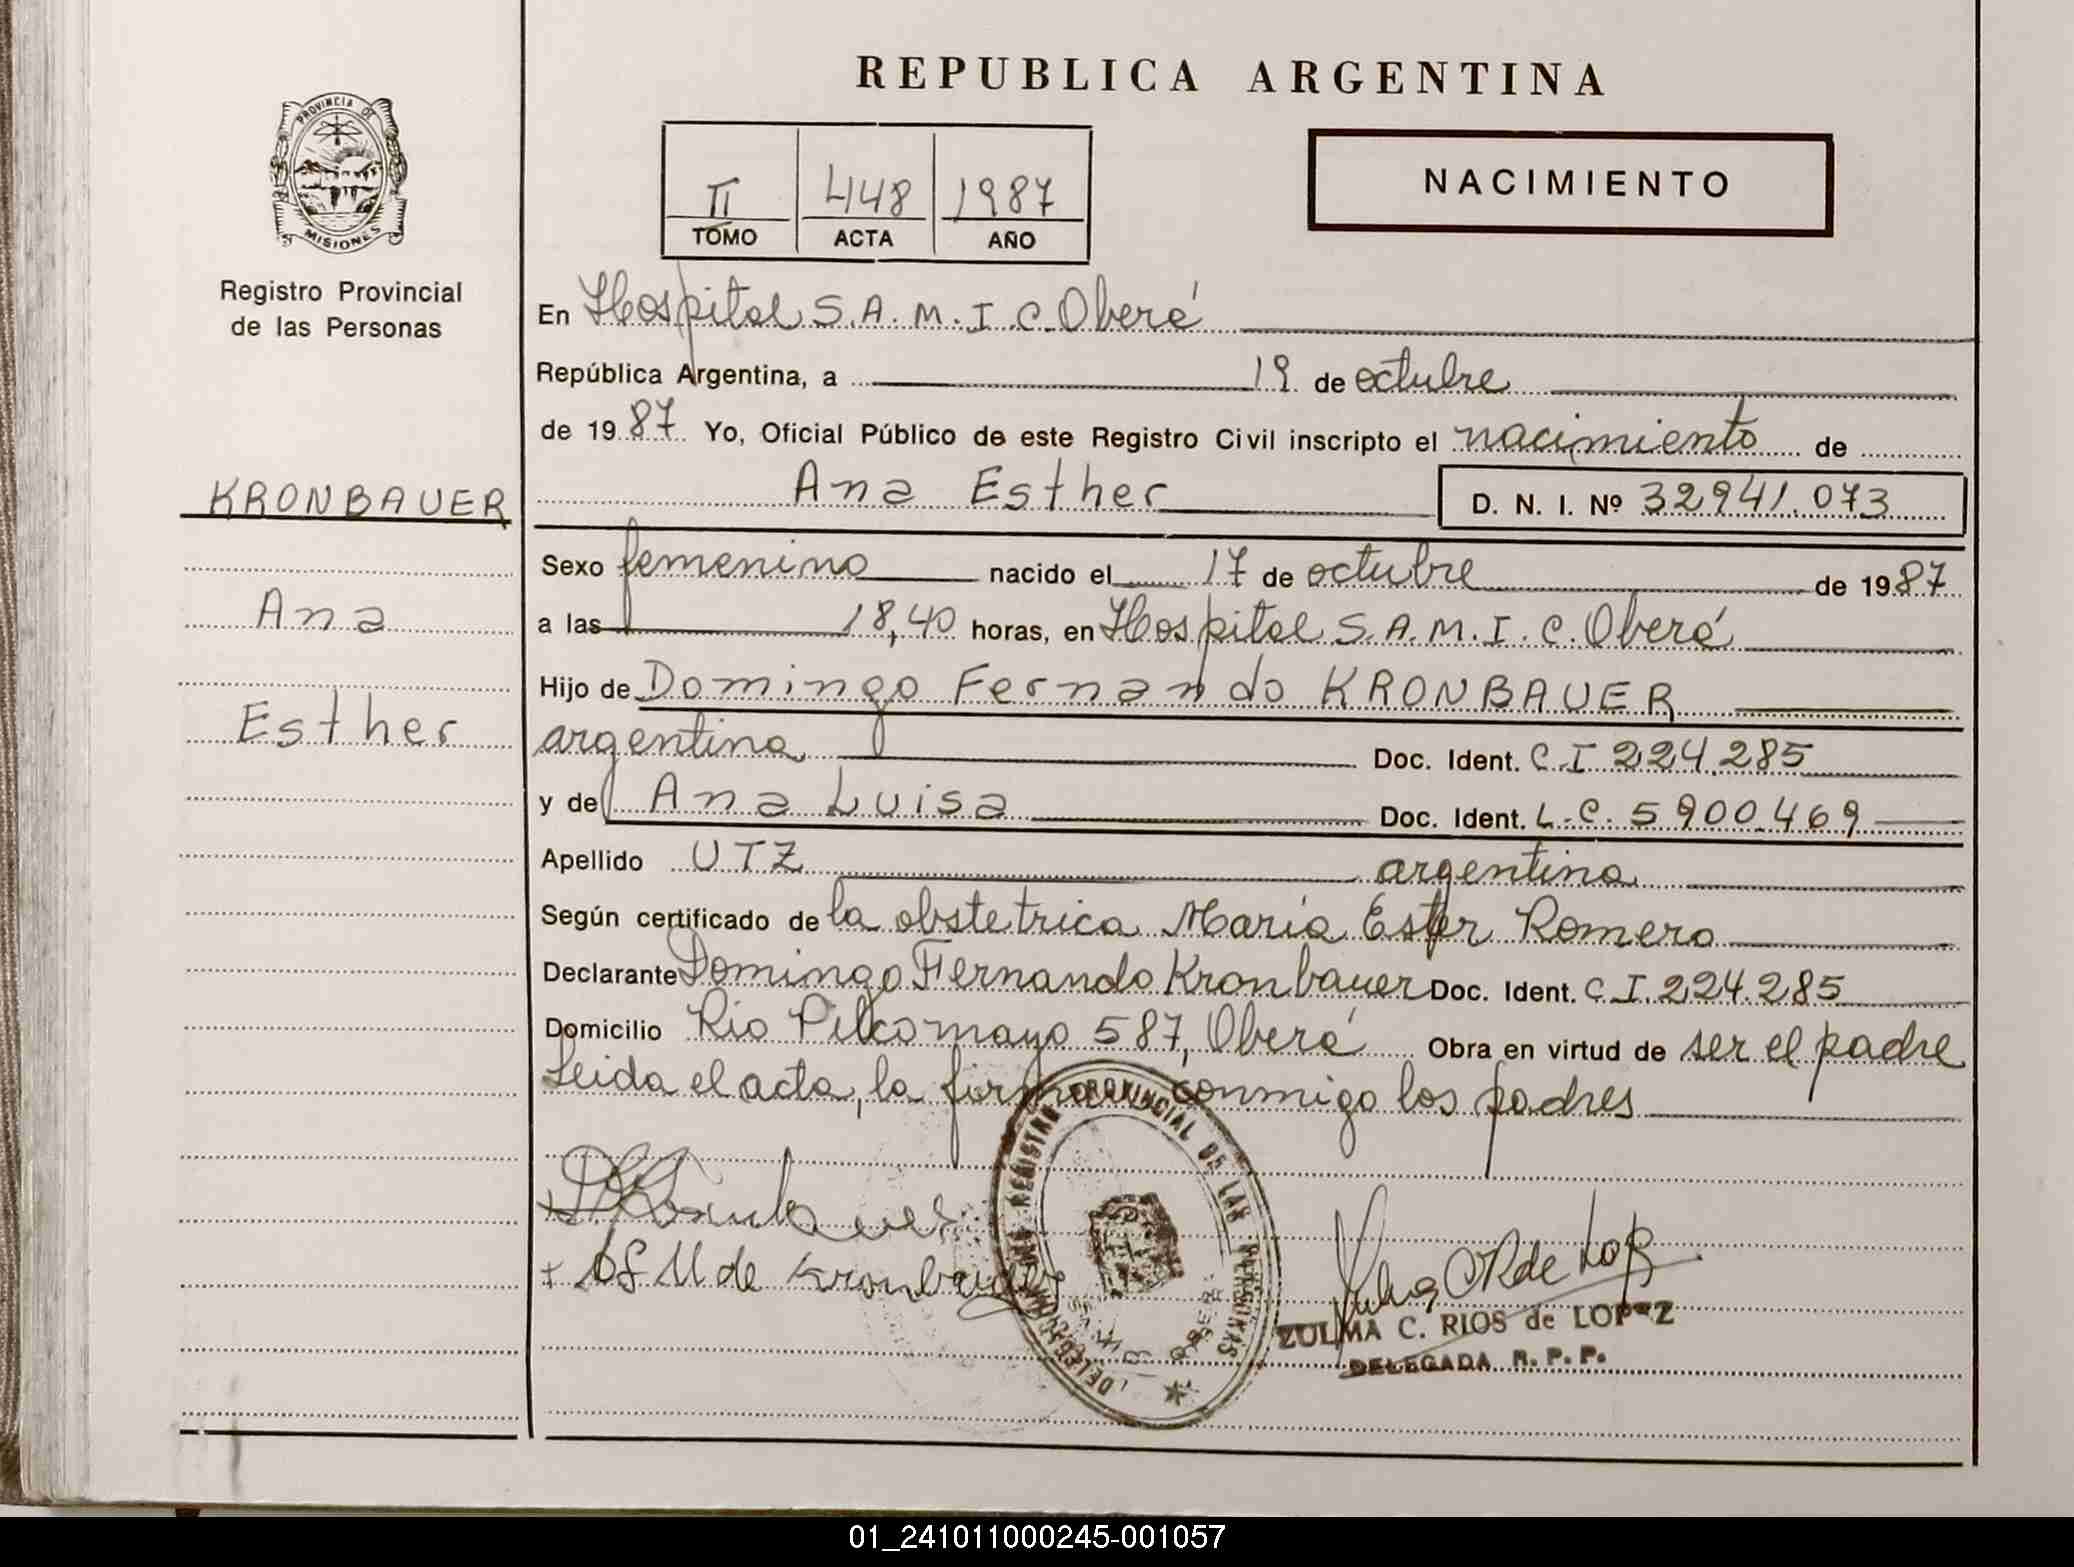 REPUBLICA ARGENTINA
PROVINCIA DE
MISIONES
Registro Provincial
de las Personas
II 448 1987
TOMO ACTA AÑO
NACIMIENTO
En Hospital S.A.M.I.C. Oberá
República Argentina, a 19 de octubre
de 1987 Yo, Oficial Público de este Registro Civil inscripto el nacimiento de
KRONBAUER
Ana Esther D. N. I. Nº 32941.073
Sexo femenino nacido el 17 de octubre de 1987
Ana
a las 18,40 horas, en Hospital S.A.M.I.C. Oberá
Hijo de Domingo Fernando KRONBAUER
Esther
argentina Doc. Ident. C.I 224.285
y de Ana Luisa Doc. Ident. L.C. 5900.469
Apellido UTZ argentina
Según certificado de la obstetrica Maria Ester Romero
Declarante Domingo Fernando Kronbauer Doc. Ident. C.I. 224.285
Domicilio Rio Pilcomayo 587, Oberá Obra en virtud de ser el padre
Leida el acta, la firman conmigo los padres
REGISTRO PROVINCIAL DE LAS PERSONAS
de Kronbauer
ZULMA C. RIOS de LOPEZ
DELEGADA R. P. P.
01_241011000245-001057